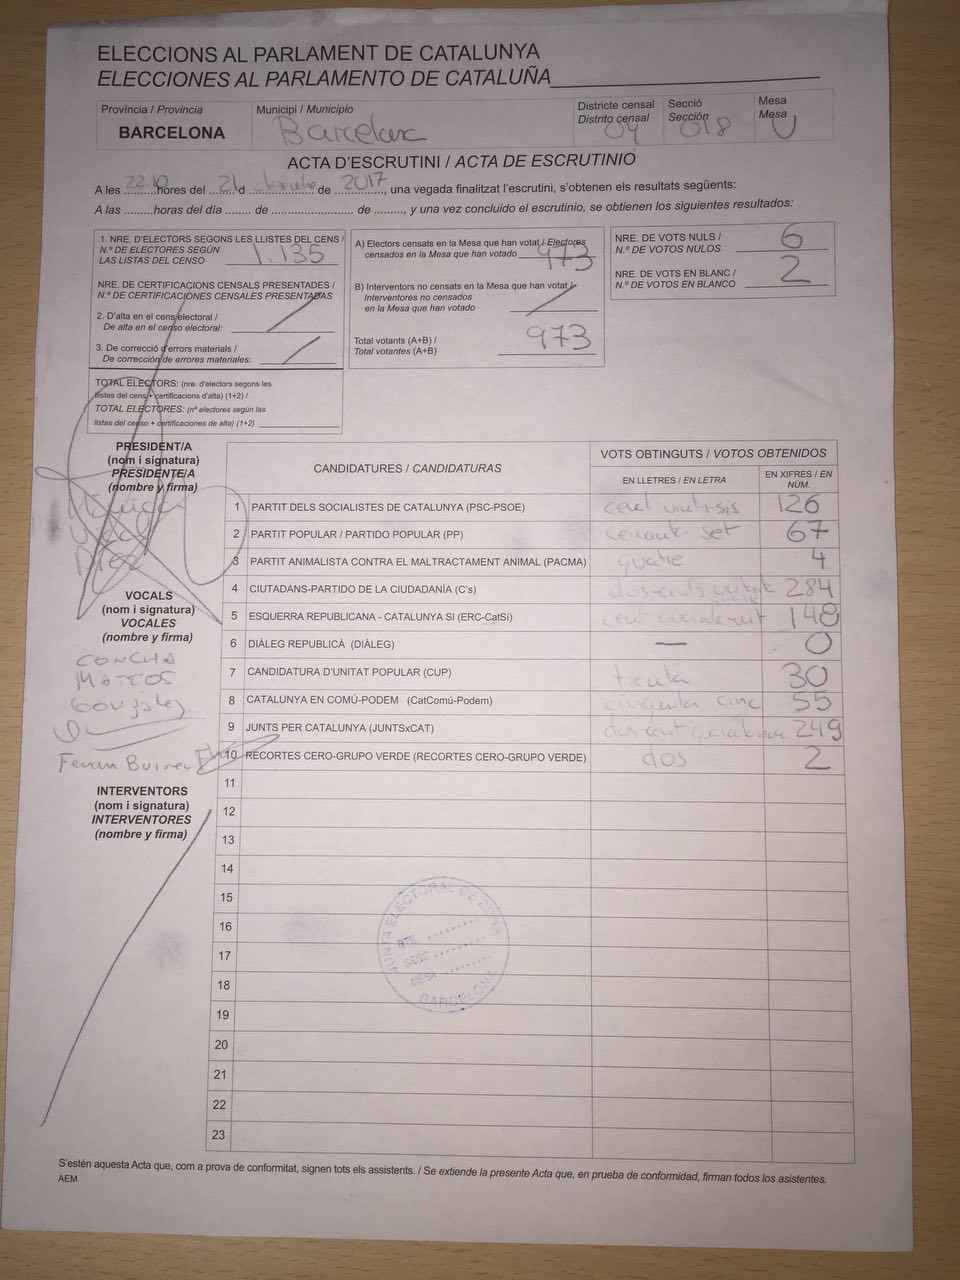 ELECCIONS AL PARLAMENT DE CATALUNYA
ELECCIONES AL PARLAMENTO DE CATALUÑA
Província / Provincia
BARCELONA
Municipi / Municipio
Barcelona
Districte censal
Distrito censal
04
Secció
Sección
018
Mesa
Mesa
U
ACTA D'ESCRUTINI / ACTA DE ESCRUTINIO
A les 22:10 hores del 21 d de 2017, una vegada finalitzat l'escrutini, s'obtenen els resultats següents:
A las .........horas del día ........ de ........................ de ........., y una vez concluido el escrutinio, se obtienen los siguientes resultados:
1. NRE. D'ELECTORS SEGONS LES LLISTES DEL CENS /
N.º DE ELECTORES SEGÚN
LAS LISTAS DEL CENSO 1.135
NRE. DE CERTIFICACIONS CENSALS PRESENTADES /
N.º DE CERTIFICACIONES CENSALES PRESENTADAS
2. D'alta en el cens electoral /
De alta en el censo electoral: /
3. De correcció d'errors materials /
De corrección de errores materiales: /
TOTAL ELECTORS: (nre. d'electors segons les
llistes del cens + certificacions d'alta) (1+2) /
TOTAL ELECTORES: (nº electores según las
listas del censo + certificaciones de alta) (1+2)
A) Electors censats en la Mesa que han votat / Electores
censados en la Mesa que han votado 973
B) Interventors no censats en la Mesa que han votat /
Interventores no censados
en la Mesa que han votado /
Total votants (A+B) /
Total votantes (A+B) 973
NRE. DE VOTS NULS /
N.º DE VOTOS NULOS 6
NRE. DE VOTS EN BLANC /
N.º DE VOTOS EN BLANCO 2
PRESIDENT/A
(nom i signatura)
PRESIDENTE/A
(nombre y firma)
VOCALS
(nom i signatura)
VOCALES
(nombre y firma)
CONCHA
MATEOS
González
Ferran
INTERVENTORS
(nom i signatura)
INTERVENTORES
(nombre y firma)
CANDIDATURES / CANDIDATURAS
VOTS OBTINGUTS / VOTOS OBTENIDOS
EN LLETRES / EN LETRA
EN XIFRES / EN NÚM.
1 PARTIT DELS SOCIALISTES DE CATALUNYA (PSC-PSOE) cent vint-i-sis 126
2 PARTIT POPULAR / PARTIDO POPULAR (PP) seixanta set 67
3 PARTIT ANIMALISTA CONTRA EL MALTRACTAMENT ANIMAL (PACMA) quatre 4
4 CIUTADANS-PARTIDO DE LA CIUDADANÍA (C's) dos-cents vuitanta quatre 284
5 ESQUERRA REPUBLICANA - CATALUNYA SI (ERC-CatSí) cent 148
6 DIÀLEG REPUBLICÀ (DIÀLEG) — 0
7 CANDIDATURA D'UNITAT POPULAR (CUP) trenta 30
8 CATALUNYA EN COMÚ-PODEM (CatComú-Podem) cinquanta cinc 55
9 JUNTS PER CATALUNYA (JUNTSxCAT) dos cent 249
10 RECORTES CERO-GRUPO VERDE (RECORTES CERO-GRUPO VERDE) dos 2
11
12
13
14
15
16
17
18
19
20
21
22
23
JUNTA ELECTORAL DE ZONA
DTE. ........
SECC. ........
MESA ........
BARCELONA
S'estén aquesta Acta que, com a prova de conformitat, signen tots els assistents. / Se extiende la presente Acta que, en prueba de conformidad, firman todos los asistentes.
AEM